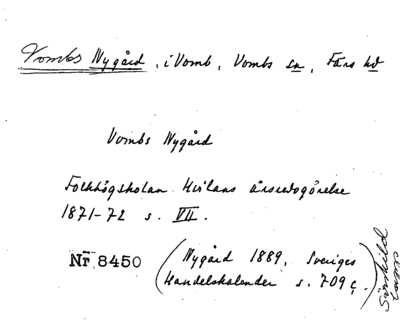 Vombs Nygård, i Vomb, Vombs sn, Färs hd
Vombs Nygård
Folkhögskolan Hvilans årsredogörelse
1871-72 s. VII.
Nr 8450
(Nygård 1889, Sveriges
Handelskalender s. 709 c.)
Särskild